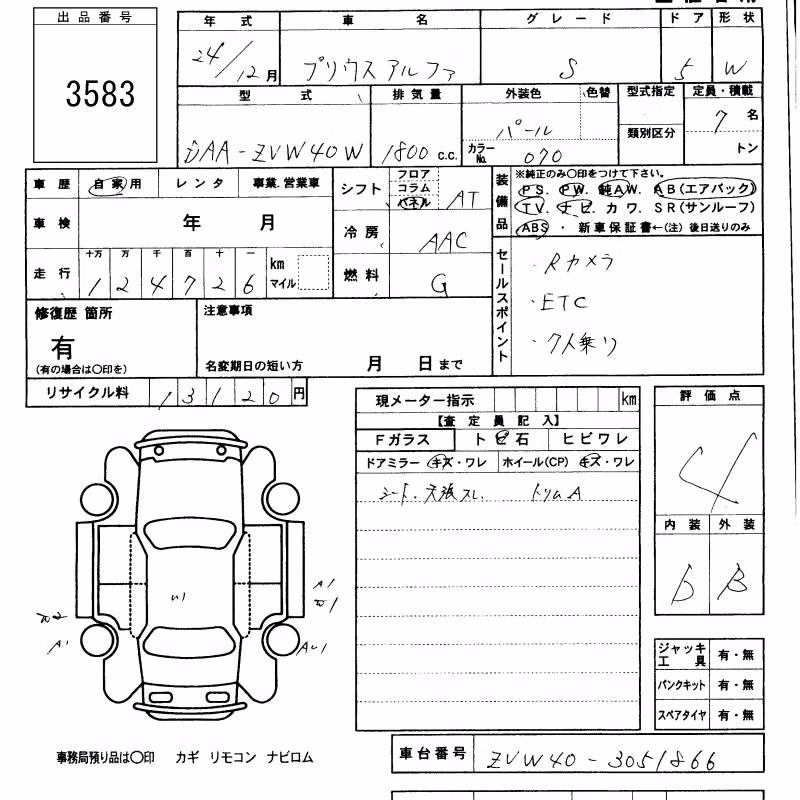 出品番号
3583
年式 車名 グレード ドア 形状
24/12月 プリウスアルファ S 5 W
型式 排気量 外装色 色替 型式指定 定員・積載
DAA-ZVW40W 1800 c.c. パール 類別区分 7名
カラーNo. 070 トン
車歴 自家用 レンタ 事業.営業車
シフト フロア コラム パネル AT
装備品 ※純正のみ○印をつけて下さい。
PS. PW. 純AW. AB(エアバック)
TV. ナビ. カワ. SR(サンルーフ)
ABS ・ 新車保証書←(注) 後日送りのみ
車検 年 月
冷房 AAC
走行 十万 万 千 百 十 一
124726 km マイル
燃料 G
セールスポイント
・Rカメラ
・ETC
・7人乗り
修復歴 箇所
有
(有の場合は○印を)
注意事項
名変期日の短い方 月 日まで
リサイクル料 13120円
現メーター指示 km
【査定員記入】
Fガラス トビ石 ヒビワレ
ドアミラー キズ・ワレ ホイール(CP) キズ・ワレ
シート.天張スレ. トリムA
評価点
4
内装 外装
D B
A1
A1
ジャッキ工具 有・無
パンクキット 有・無
スペアタイヤ 有・無
事務局預り品は○印 カギ リモコン ナビロム
車台番号 ZVW40-3051866